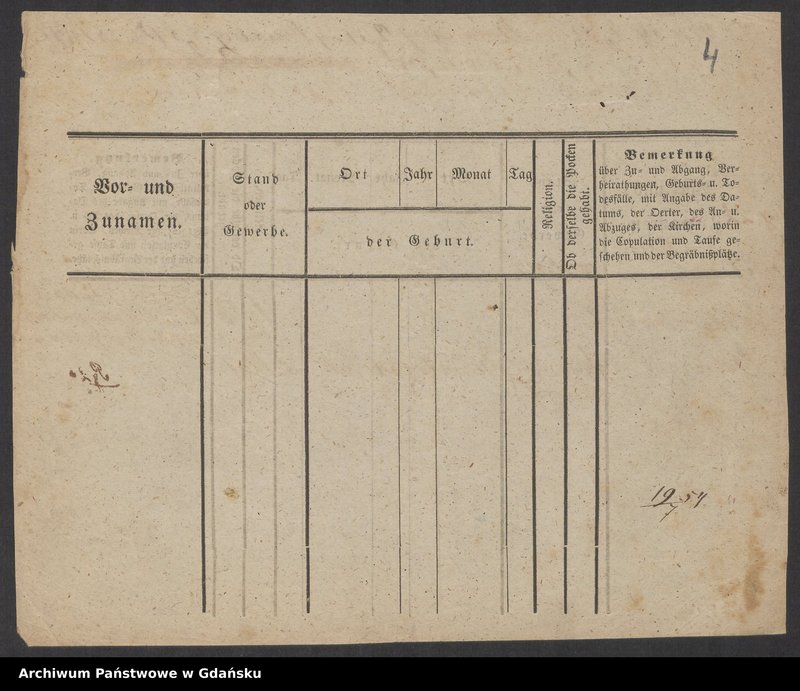 4
Vor- und
Zunamen.
Stand
oder
Gewerbe.
Ort
Jahr
Monat
Tag
der Geburt.
Religion.
Ob derselbe die Pocken
gehabt.
Bemerkung
über Zu- und Abgang, Ver-
heirathungen, Geburts- u. To-
desfälle, mit Angabe des Da-
tums, der Oerter, des An- u.
Abzuges, der Kirchen, worin
die Copulation und Taufe ge-
schehen und der Begräbnißplätze.
19/7 54
Archiwum Państwowe w Gdańsku